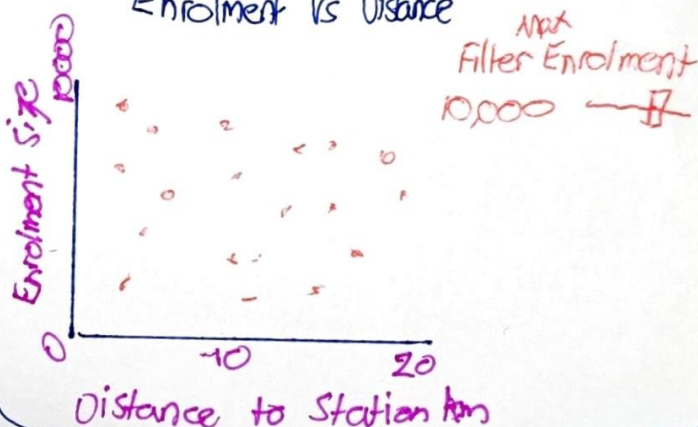 Enrolment Vs Distance
Max
Filter Enrolment
10,000
10000
Enrolment Size
0
10
20
Distance to Station km